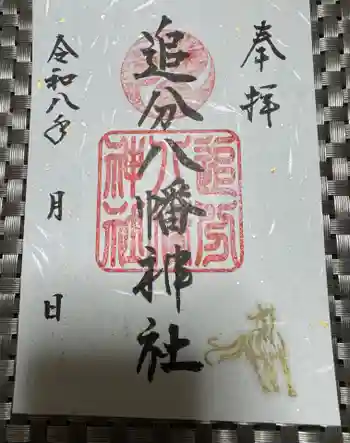 奉拝
追分八幡神社
追分
八幡
神社
令和八年
月
日